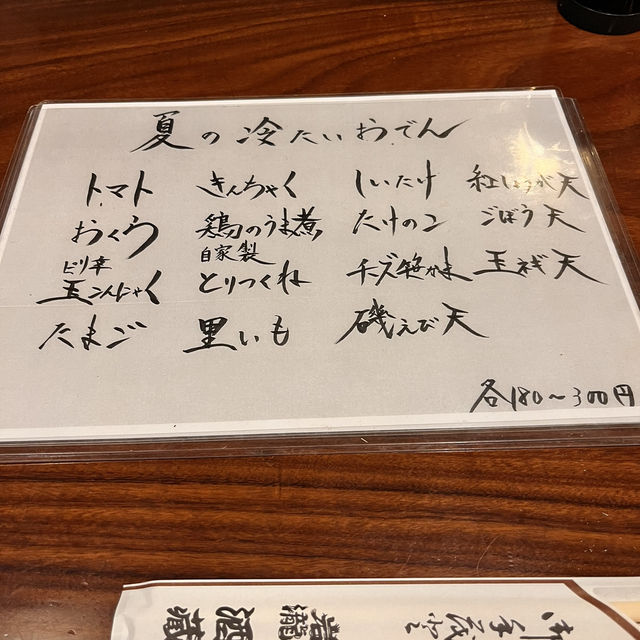 夏の冷たいおでん
トマト
おくら
ピリ辛
玉こんにゃく
たまご
きんちゃく
鶏のうま煮
自家製
とりつくね
里いも
しいたけ
たけのこ
チーズ笹かま
磯えび天
紅しょうが天
ごぼう天
玉ネギ天
各180〜300円
酒蔵